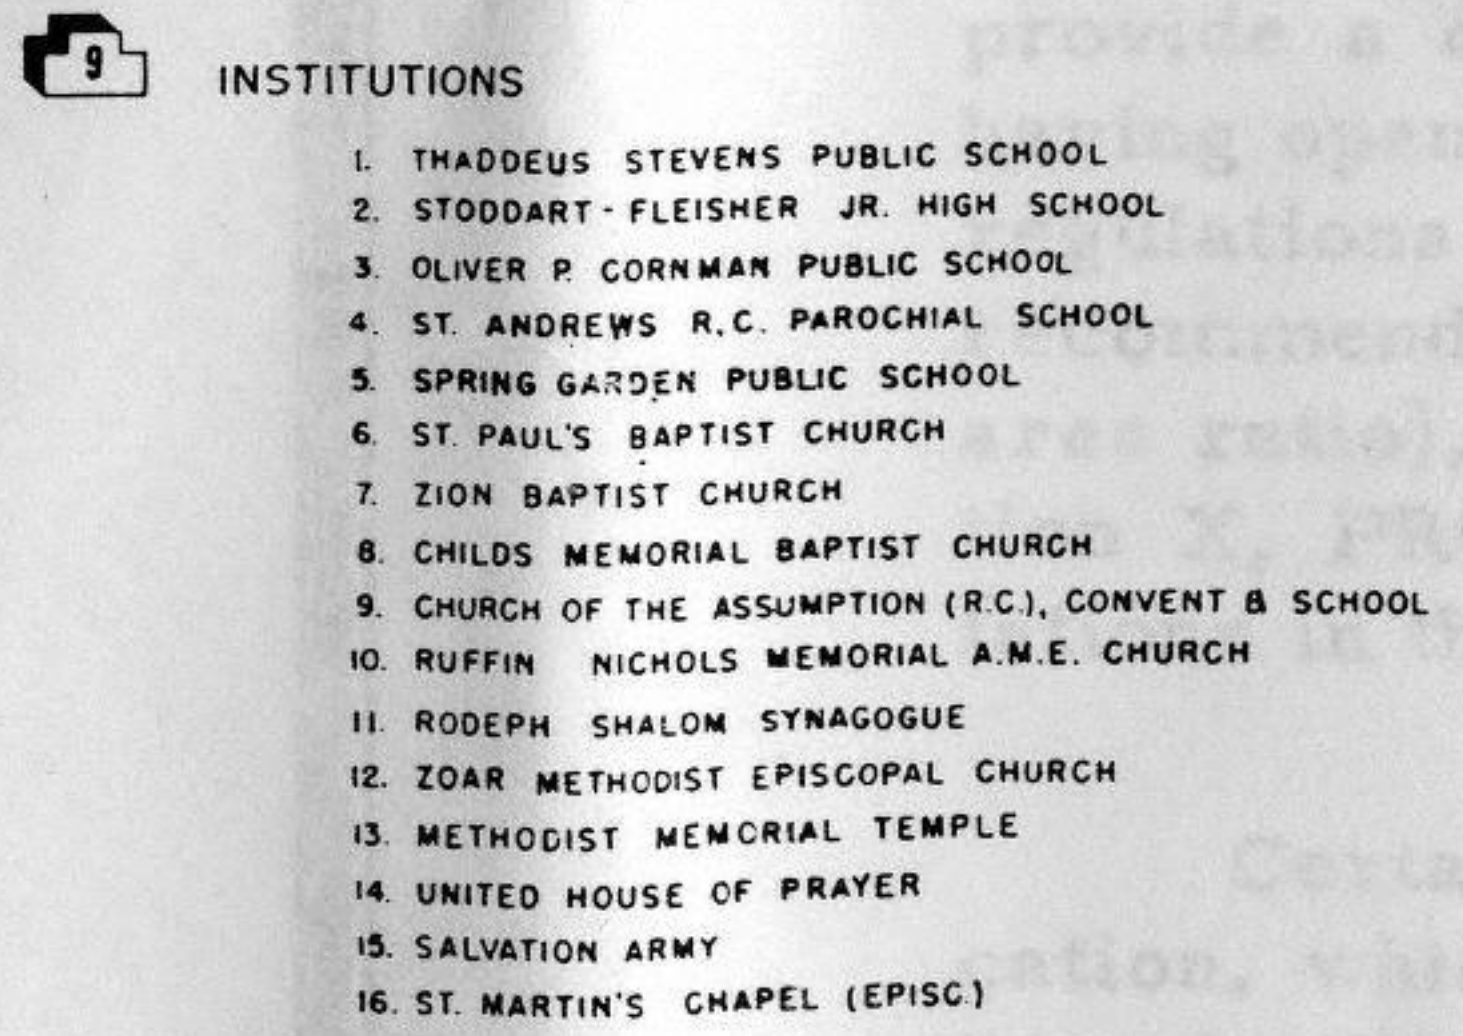 9 INSTITUTIONS
1. THADDEUS STEVENS PUBLIC SCHOOL
2. STODDART - FLEISHER JR. HIGH SCHOOL
3. OLIVER P. CORNMAN PUBLIC SCHOOL
4. ST. ANDREWS R.C. PAROCHIAL SCHOOL
5. SPRING GARDEN PUBLIC SCHOOL
6. ST. PAUL'S BAPTIST CHURCH
7. ZION BAPTIST CHURCH
8. CHILDS MEMORIAL BAPTIST CHURCH
9. CHURCH OF THE ASSUMPTION (R.C.), CONVENT & SCHOOL
10. RUFFIN NICHOLS MEMORIAL A.M.E. CHURCH
11. RODEPH SHALOM SYNAGOGUE
12. ZOAR METHODIST EPISCOPAL CHURCH
13. METHODIST MEMORIAL TEMPLE
14. UNITED HOUSE OF PRAYER
15. SALVATION ARMY
16. ST. MARTIN'S CHAPEL (EPISC.)
provide a
regulations
X,
in